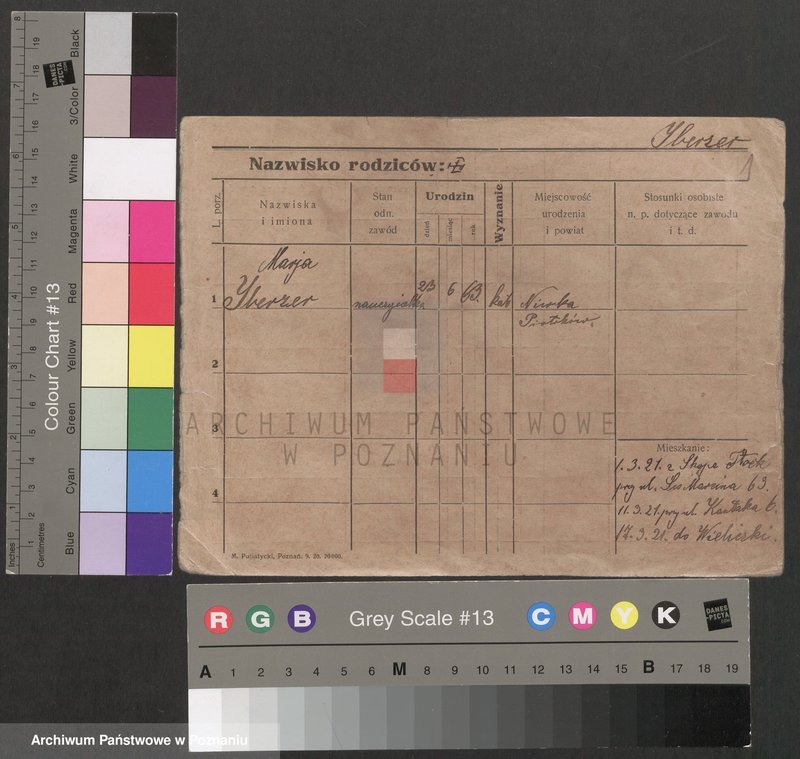 Yberzer
1
Nazwisko rodziców:
L. porz.
Nazwiska
i imiona
Stan
odn.
zawód
Urodzin
dzień
miesiąc
rok
Wyznanie
Miejscowość
urodzenia
i powiat
Stosunki osobiste
n. p. dotyczące zawodu
i t. d.
Marja
1 Yberzer nauczycielka 23 6 63. kat
Piotrków.
2
3
4
Mieszkanie:
1.3.21. z
przy ul. Św Marcina 69.
11.3.21. przy ul. Kantaka 6.
17.3.21. do
M. Putiatycki, Poznań. 9. 20. 20000.
ARCHIWUM PAŃSTWOWE
W POZNANIU
Colour Chart #13
Blue
Cyan
Green
Yellow
Red
Magenta
White
3/Color
Black
Inches
Centimetres
1 2 3 4 5 6 7 8
1 2 3 4 5 6 7 8 9 10 11 12 13 14 15 16 17 18 19
DANES
-PICTA
.COM
R G B Grey Scale #13 C M Y K
DANES
-PICTA
.COM
A 1 2 3 4 5 6 M 8 9 10 11 12 13 14 15 B 17 18 19
Archiwum Państwowe w Poznaniu